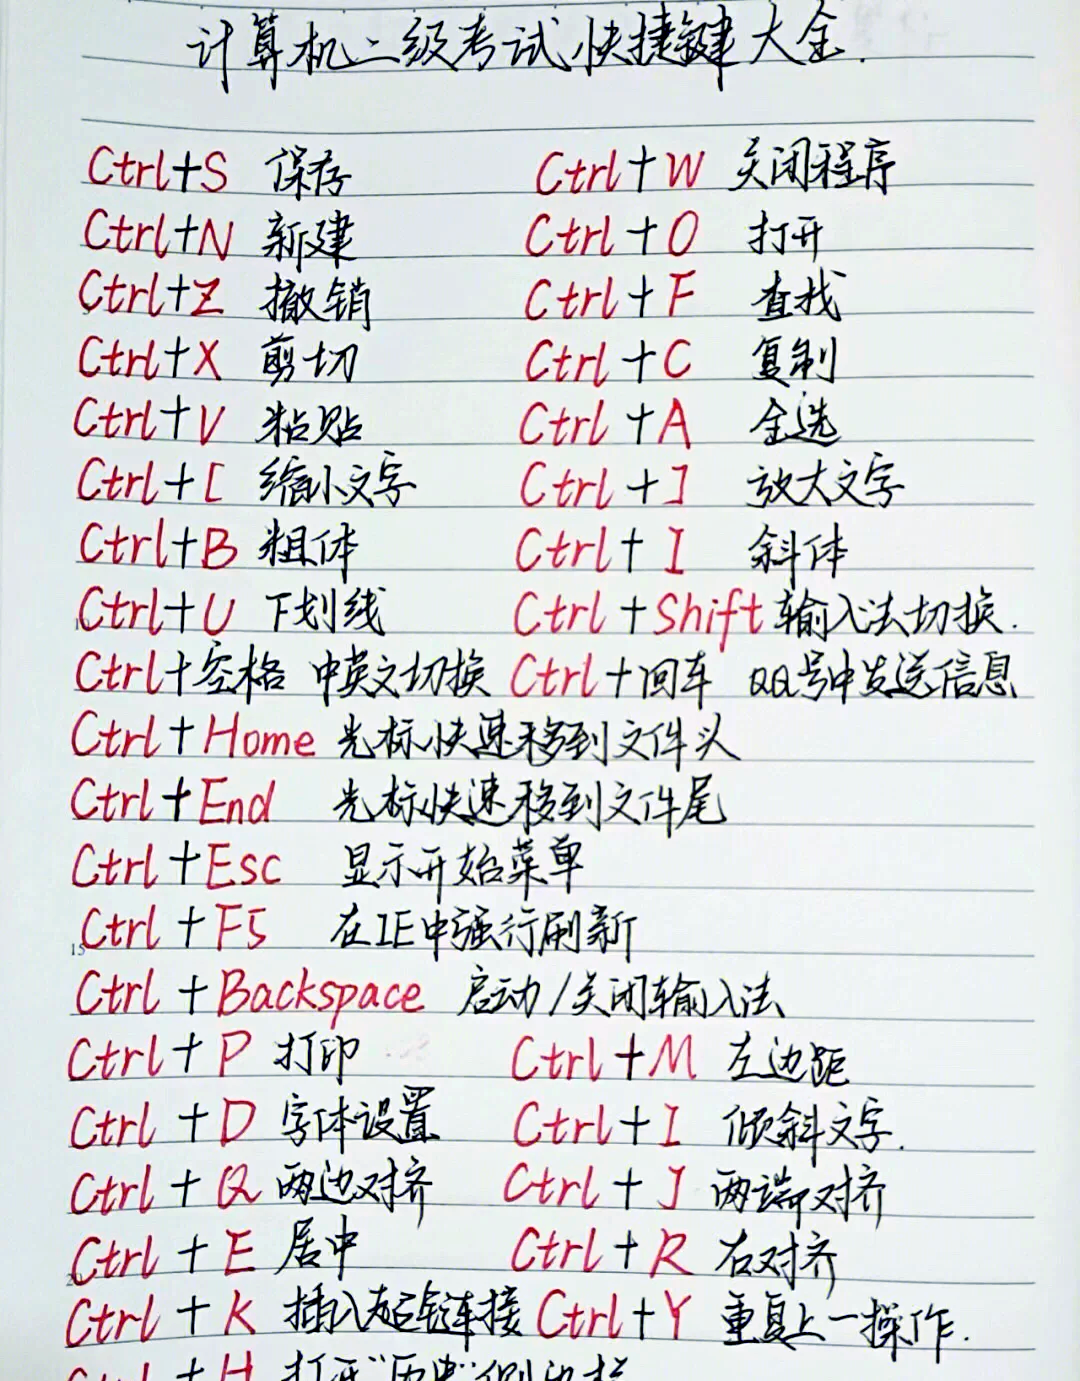 计算机二级考试快捷键大全.
Ctrl+S 保存 Ctrl+W 关闭程序
Ctrl+N 新建 Ctrl+O 打开
Ctrl+Z 撤销 Ctrl+F 查找
Ctrl+X 剪切 Ctrl+C 复制
Ctrl+V 粘贴 Ctrl+A 全选
Ctrl+[ 缩小文字 Ctrl+] 放大文字
Ctrl+B 粗体 Ctrl+I 斜体
Ctrl+U 下划线 Ctrl+Shift 输入法切换.
Ctrl+空格 中英文切换 Ctrl+回车 QQ号中发送信息
Ctrl+Home 光标快速移到文件头
Ctrl+End 光标快速移到文件尾
Ctrl+Esc 显示开始菜单
15 Ctrl+F5 在IE中强行刷新
Ctrl+Backspace 启动/关闭输入法
Ctrl+P 打印 Ctrl+M 左边距
Ctrl+D 字体设置 Ctrl+I 倾斜文字.
Ctrl+Q 两边对齐 Ctrl+J 两端对齐
Ctrl+E 居中 Ctrl+R 右对齐
Ctrl+K 插入超链接 Ctrl+Y 重复上一操作.
Ctrl+H 打开"历史"侧边栏